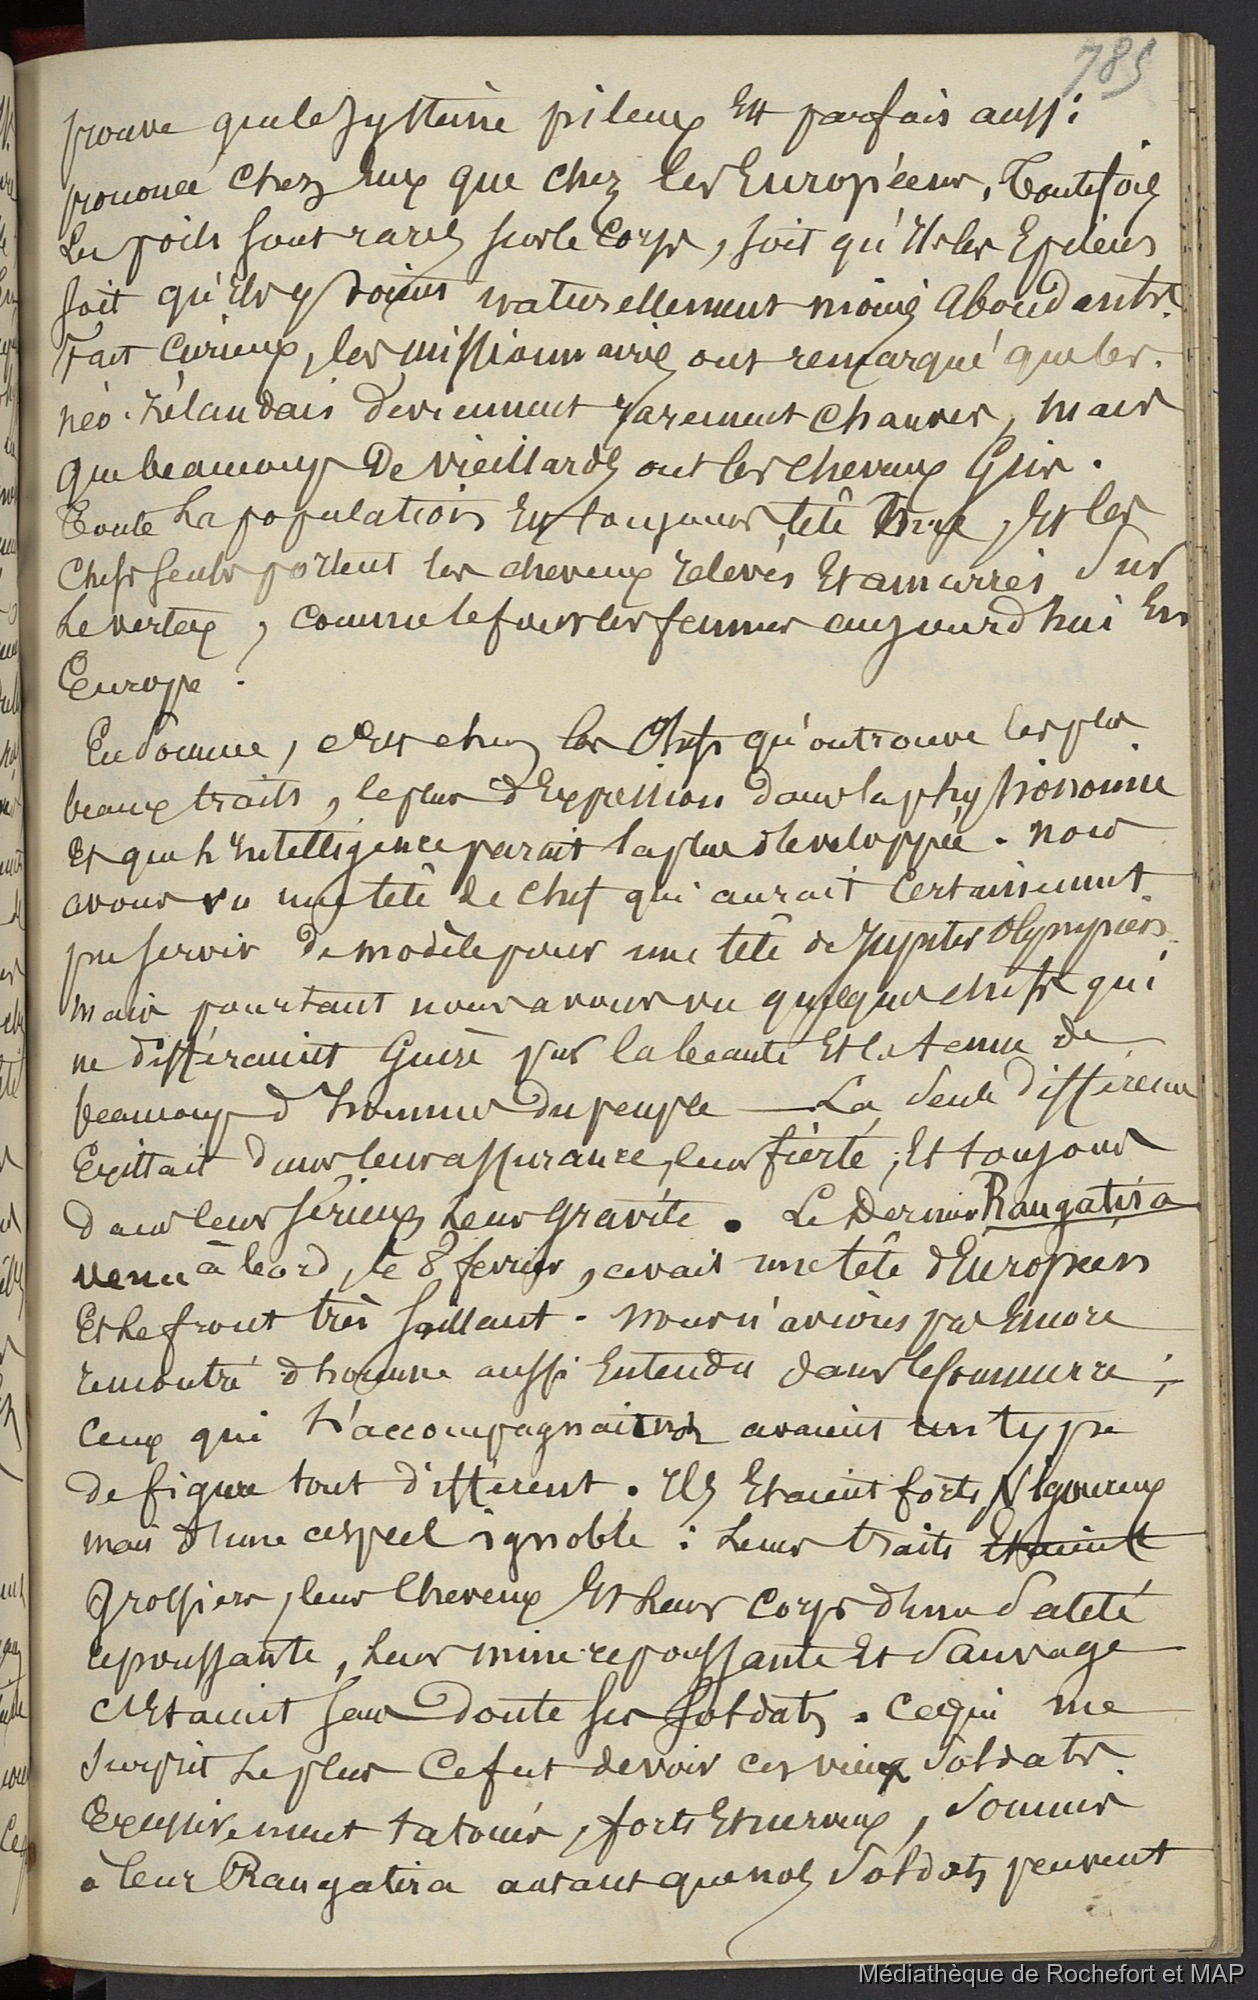 785
prouve que le système pileux est parfois aussi
prononcé chez eux que chez les Européens. Toutefois
les poils sont rares sur le corps, soit qu'ils les epilens
soit qu'ils y soient naturellement moins abondants.
Fait curieux, les missionnaires ont remarqué que les
néo-Zélandais deviennent rarement chauves, mais
que beaucoup de vieillards ont les cheveux gris.
Toute la population est toujours tête nue, et les
chefs seuls portent les cheveux relevés et amarrés sur
le vertex, comme le font les femmes aujourd'hui en
Europe.
En somme, c'est chez les chefs qu'on trouve les plus
beaux traits, le plus d'expression dans la physionomie
et que l'intelligence parait la plus développée. Nous
avons vu une tête de chef qui aurait certainement
pu servir de modèle pour une tête de Jupiter Olympien.
mais pourtant nous avons vu quelques chefs qui
ne différaient guère par la beauté et la tenue de
beaucoup d'hommes du peuple — La seule différence
existait dans leur assurance, leur fierté, et toujours
dans leur sérieux leur gravité. Le dernier Rangatira
venu à bord, le 8 fevrier, avait une tête d'Européen
et le front très saillant. Nous n'avions pas encore
rencontré d'homme aussi entendu dans le commerce;
ceux qui l'accompagnaient avaient un type
de figure tout différent. Ils etaient forts, vigoureux
mais d'une aspect ignoble: leurs traits etaient
grossiers, leur cheveux et leur corps d'une saleté
repoussante, leur mine repoussante et sauvage
c'etaient sans doute ses soldats. Ce qui me
surprit le plus ce fut de voir ces vieux soldats
excessivement tatoués, forts et nerveux, soumis
à leur Rangatira autant que nos soldats peuvent
Médiathèque de Rochefort et MAP